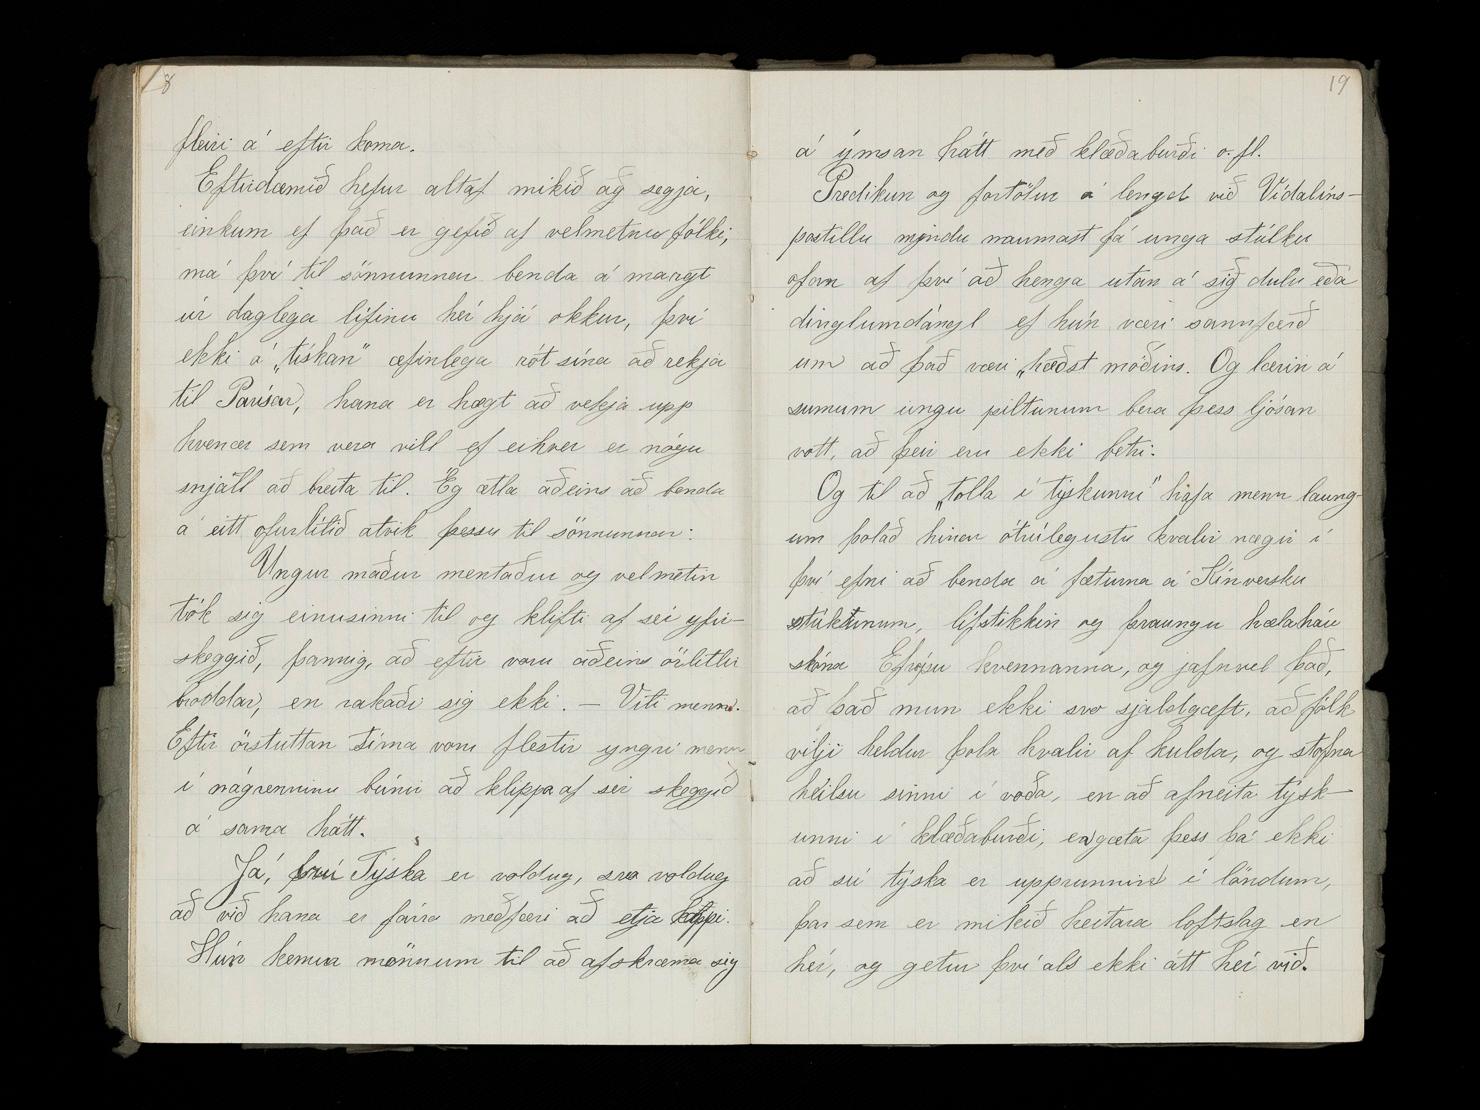 18
fleiri á eftir koma.
Eftirdæmið hefur altaf mikið að segja,
einkum ef það er gefið af velmetnu fólki,
má því til sönnunnar benda á margt
úr daglega lífinu hér hjá okkur, því
ekki á „tískan" æfinlega rót sína að rekja
til Parísar, hana er hægt að vekja upp
hvenær sem vera vill ef eihver er nógu
snjáll að breita til. Ég ætla aðeins að benda
á eitt ofurlítið atvik þessu til sönnunnar:
Ungur maður mentaður og velmetin
tók sig einusinni til og klifti af sér yfir-
skeggið, þannig, að eftir voru aðeins örlitlir
broddar, en rakaði sig ekki. – Viti menn.
Eftir örstuttan tíma voru flestir yngri menn
í nágrenninu búnir að klippa af sér skeggið
á sama hátt.
Já, frú Týska er voldug, svo voldug
að við hana er fárra meðfæri að etja kappi.
Hún kemur mönnum til að afskræma sig
19
á ýmsan hátt með klæðaburði o.fl.
Predikun og fortölur á lengd við Vídalíns-
postillu myndu naumast fá unga stúlku
ofan af því að hengja utan á sig dulu eða
dinglumdángl ef hún væri sannfærð
um að það væri „hæðst móðins. Og lærin á
sumum ungu piltunum bera þess ljósan
vott, að þeir eru ekki betri.
Og til að „tolla í týskunni" hafa menn laung-
um þolað hinar ótrúlegustu kvalir nægir í
því efni að benda á fæturna á Kínversku
stúlkunum, lífstikkin og þraungu hælaháu
skóna Efrópu kvennanna, og jafnvel það,
að það mun ekki svo sjaldgæft, að fólk
vilji heldur þola kvalir af kulda, og stofna
heilsu sinni í voða, en að afneita týsk-
unni í klæðaburði, en gæta þess þá ekki
að sú týska er upprunnin í löndum,
þar sem er mikið heitara loftslag en
hér, og getur því als ekki átt hér við.